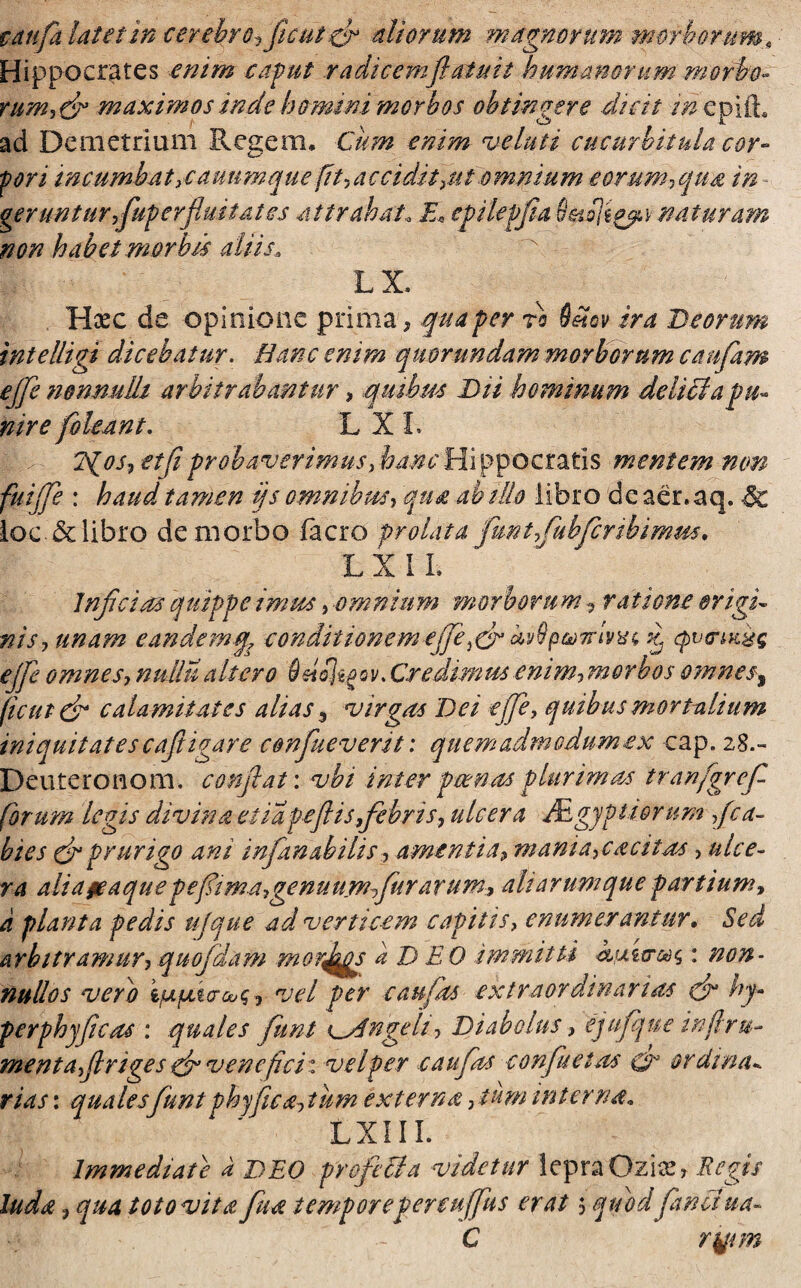 caufa latet in cerebro, ficut & aliorum magnorum morborum.
Hippocrates enim caput radicem ftatuit humanorum morbo-
rum, & maximos inde homini morbos obtingere dicit in epift.
ad Demetrium Regem. Cum enim veluti cucurbitula cor-
pori incumbat, cauumque fit, accidit, ut omnium eorum, quæ in-
geruntur, fuperfluitates attrahat. E. epilepfia θειότερην naturam
non habet morbis aliis.
LX.
Hæc de opinione prima, qua per τὸ θεῖον ira Deorum
intelligi dicebatur. Hanc enim quorundam morborum caufam
effe nonnulli arbitrabantur, quibus Dii hominum delicta pu-
nire foleant. LXI.
Nos, etfi probaverimus, hanc Hippocratis mentem non
fuiffe : haud tamen ijs omnibus, quæ ab illo libro de aër. aq. &
loc & libro de morbo facro prolata funt, fubfcribimus.
LXII.
Inficias quippe imus, omnium morborum, ratione origi-
nis, unam eandemq; conditionem effe, & ἀνθρωπίνους ϗ φυσικοὺς
effe omnes, nullū altero θειότερον. Credimus enim, morbos omnes,
ficut & calamitates alias, virgas Dei effe, quibus mortalium
iniquitates caftigare confueverit : quemadmodum ex cap. 28.-
Deuteronom. conftat : vbi inter pœnas plurimas tranfgref-
forum legis divinæ etiā peftis, febris, ulcera Ægyptiorum, fca-
bies & prurigo ani infanabilis, amentia, mania, cæcitas, ulce-
ra alia eaque pefsima, genuum, furarum, aliarumque partium,
à planta pedis ufque ad verticem capitis, enumerantur. Sed
arbitramur, quofdam morbos à DEO immitti ἀμέσως : non-
nullos vero ἐμμέσως, vel per caufas extraordinarias & hy-
perphyficas : quales funt Angeli, Diabolus, ejufque inftru-
menta, ftriges & venefici : vel per caufas confuetas & ordina-
rias : quales funt phyficæ, tùm externæ, tùm internæ.
LXIII.
Immediatè à DEO profecta videtur lepra Oziæ, Regis
Iudæ, qua toto vitæ fuæ tempore percuffus erat ; quòd fanctua-
C rium